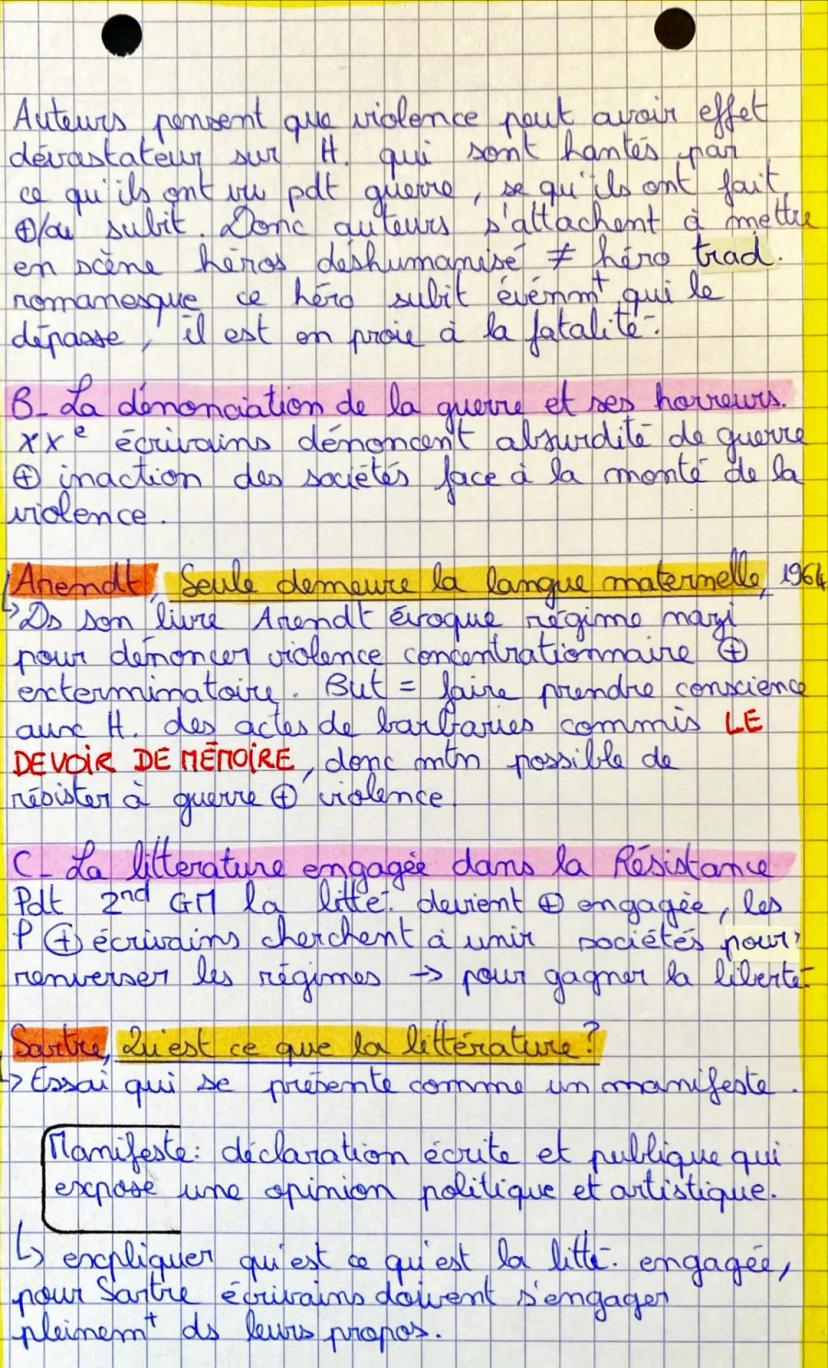 Auteurs pensent que violence peut avoir effet
dévastateur sur H. qui sont hantés par
ce qu'ils ont vu pdt guerre, se qu'ils ont fait
⊕/ou subit. Donc auteurs s'attachent à mettre
en scène héros déshumanisé ≠ héro trad.
romanesque ce héro subit événmt qui le
dépasse, il est en proie à la fatalité.
B- La dénonciation de la guerre et ses horreurs.
XXe écrivains dénoncent absurdité de guerre
⊕ inaction des sociétés face à la monté de la
violence.
Arendt, Seule demeure la langue maternelle, 1964
↳ Ds son livre Arendt évoque régime nazi
pour dénoncer violence concentrationnaire ⊕
exterminatoire. But = faire prendre conscience
aux H. des actes de barbaries commis LE
DEVOIR DE MÉMOIRE, donc mtn possible de
résister à guerre ⊕ violence.
C- La litterature engagée dans la Résistance
Pdt 2nd GM la litté. devient ⊕ engagée, les
P ⊕ écrivains cherchent à unir sociétés pour
renverser les régimes → pour gagner la liberté.
Sartre, Qu'est ce que la littérature?
↳ Essai qui se présente comme un manifeste.
Manifeste: déclaration écrite et publique qui
expose une opinion politique et artistique.
↳ expliquer qu'est ce qu'est la litté. engagée,
pour Sartre écrivains doivent s'engager
pleinemt ds leurs propos.